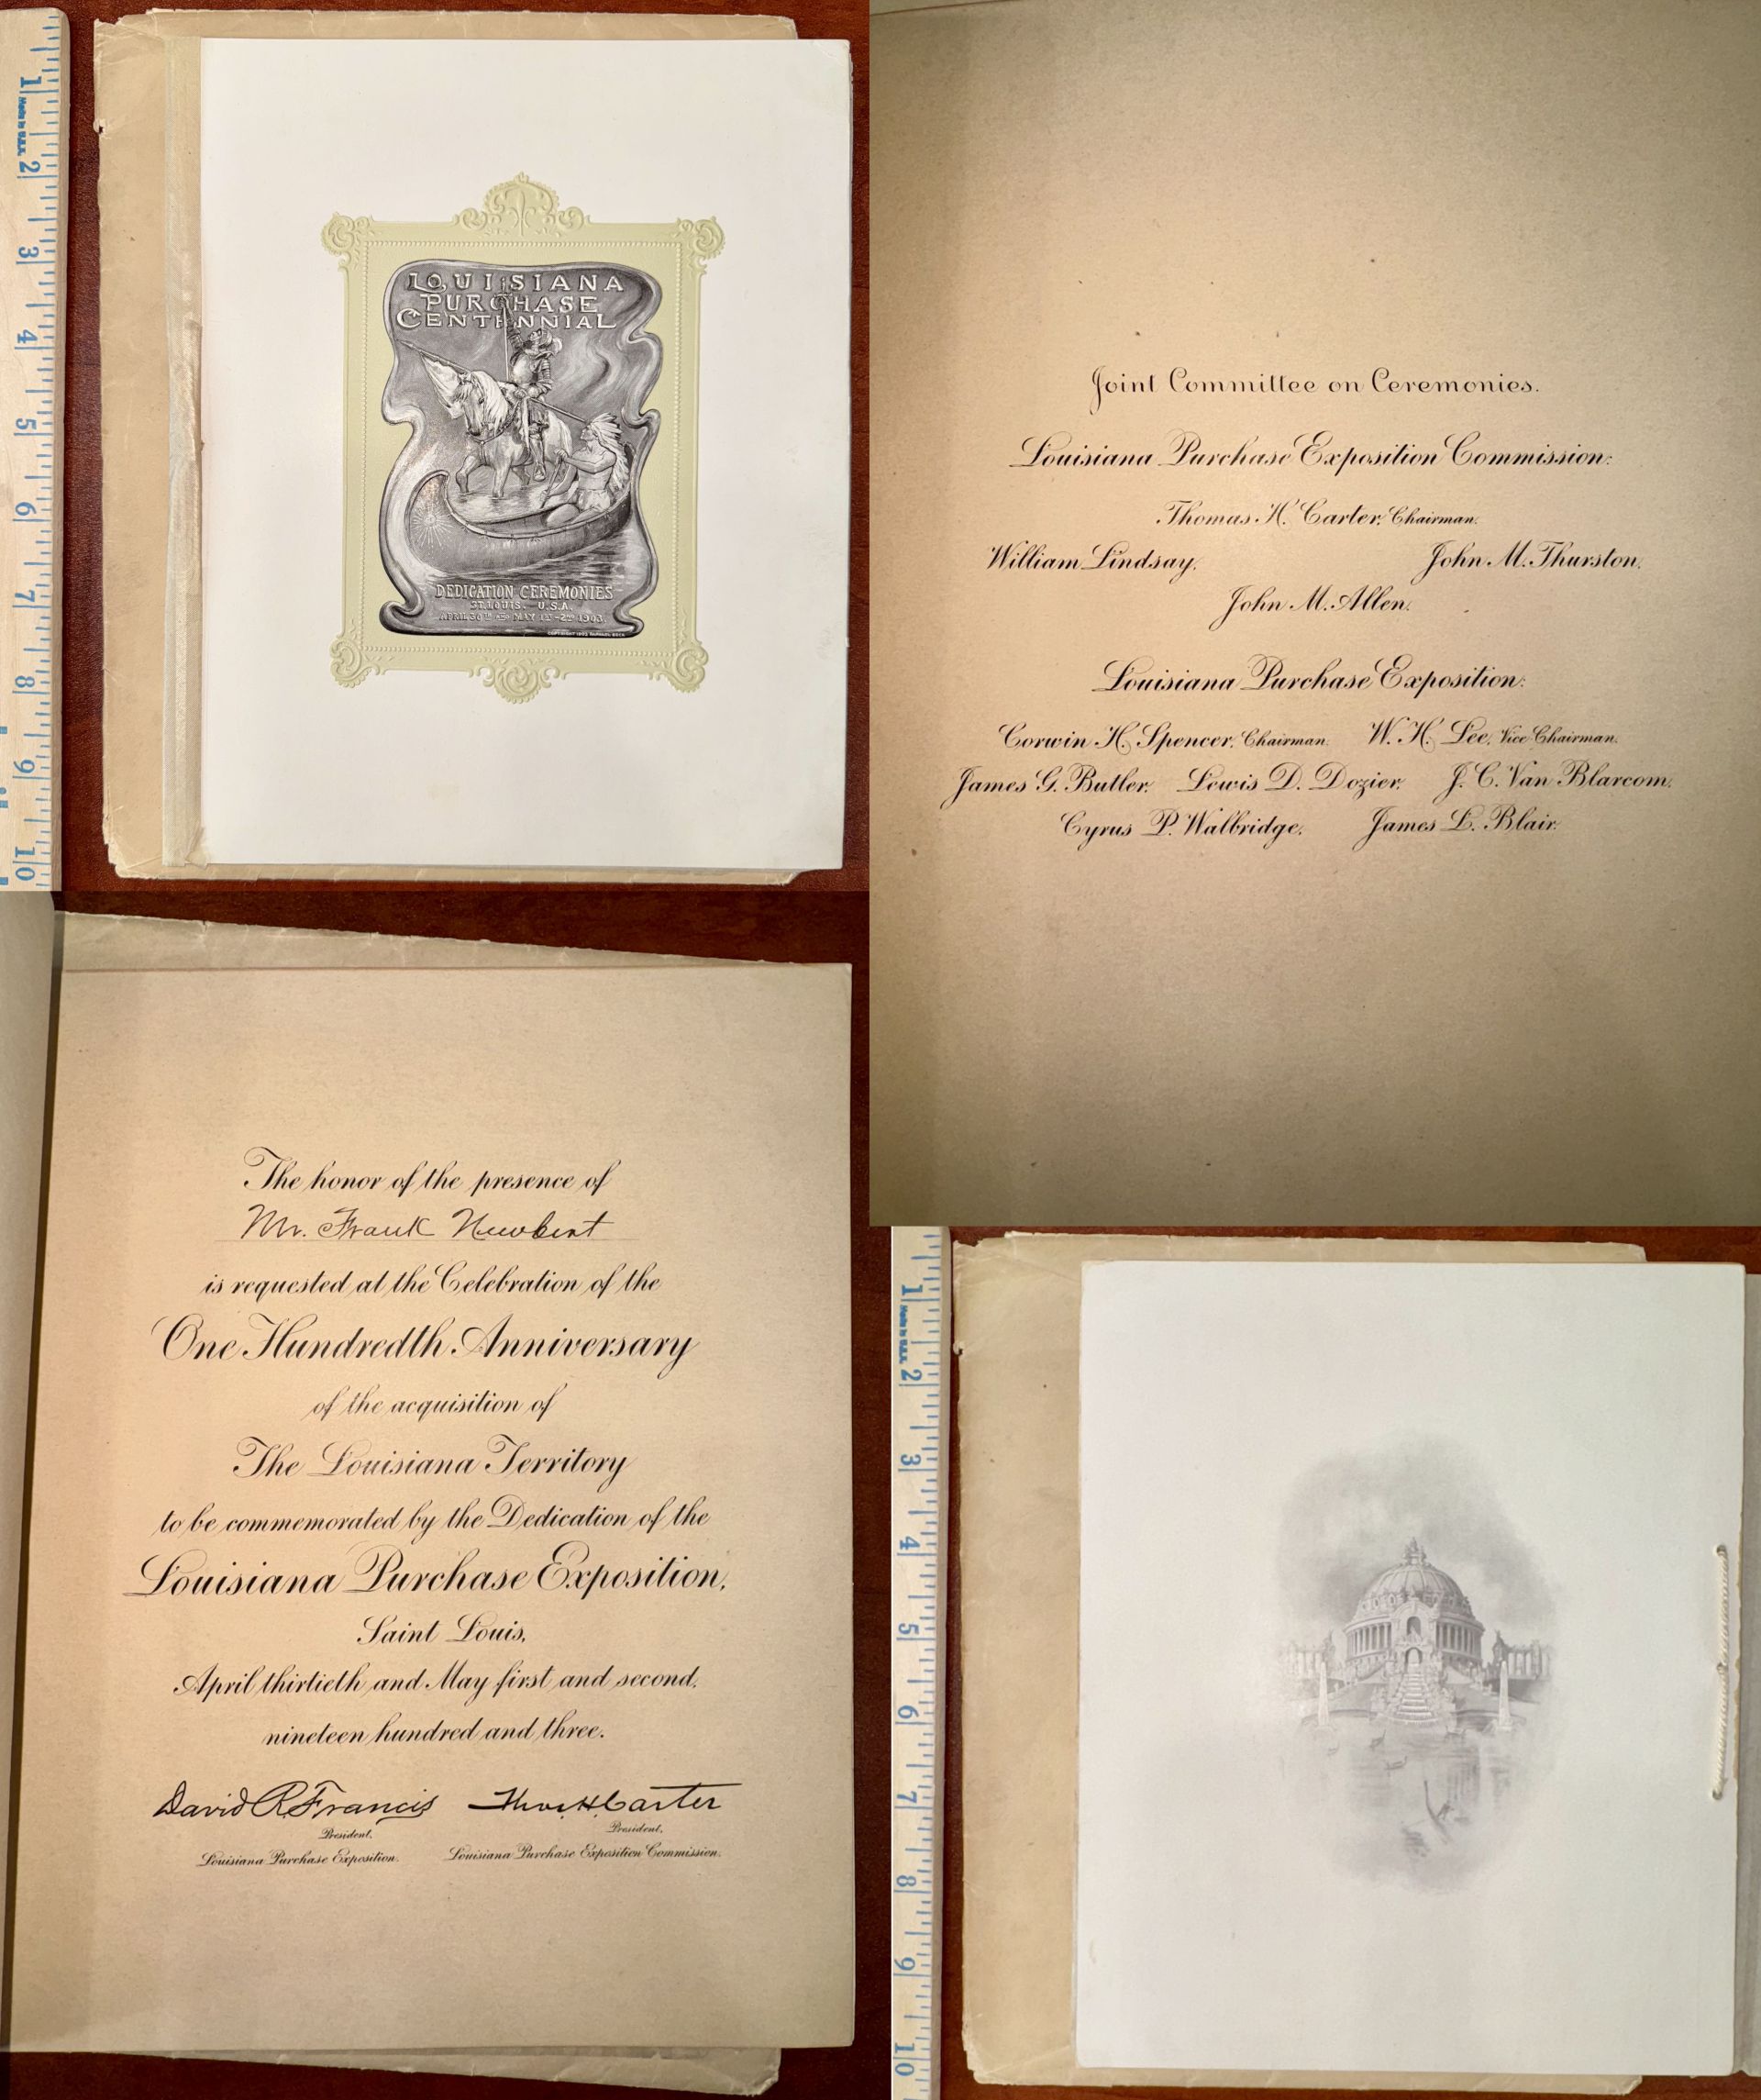 LOUISIANA
PURCHASE
CENTENNIAL
DEDICATION CEREMONIES
ST. LOUIS. U.S.A.
APRIL 30TH AND MAY 1ST-2ND 1903.
COPYRIGHT 1902 RAPHAEL BECK
1 2 3 4 5 6 7 8 9 10
Made in U.S.A.
Joint Committee on Ceremonies.
Louisiana Purchase Exposition Commission:
Thomas H. Carter, Chairman.
William Lindsay. John M. Thurston.
John M. Allen.
Louisiana Purchase Exposition:
Corwin H. Spencer, Chairman. W. H. Lee, Vice Chairman.
James G. Butler. Lewis D. Dozier. J. C. Van Blarcom.
Cyrus P. Walbridge. James L. Blair.
The honor of the presence of
Mr. Frank Newbert
is requested at the Celebration of the
One Hundredth Anniversary
of the acquisition of
The Louisiana Territory
to be commemorated by the Dedication of the
Louisiana Purchase Exposition,
Saint Louis,
April thirtieth and May first and second,
nineteen hundred and three.
David R. Francis Thos. H. Carter
President, President,
Louisiana Purchase Exposition. Louisiana Purchase Exposition Commission.
1 2 3 4 5 6 7 8 9 10
Made in U.S.A.